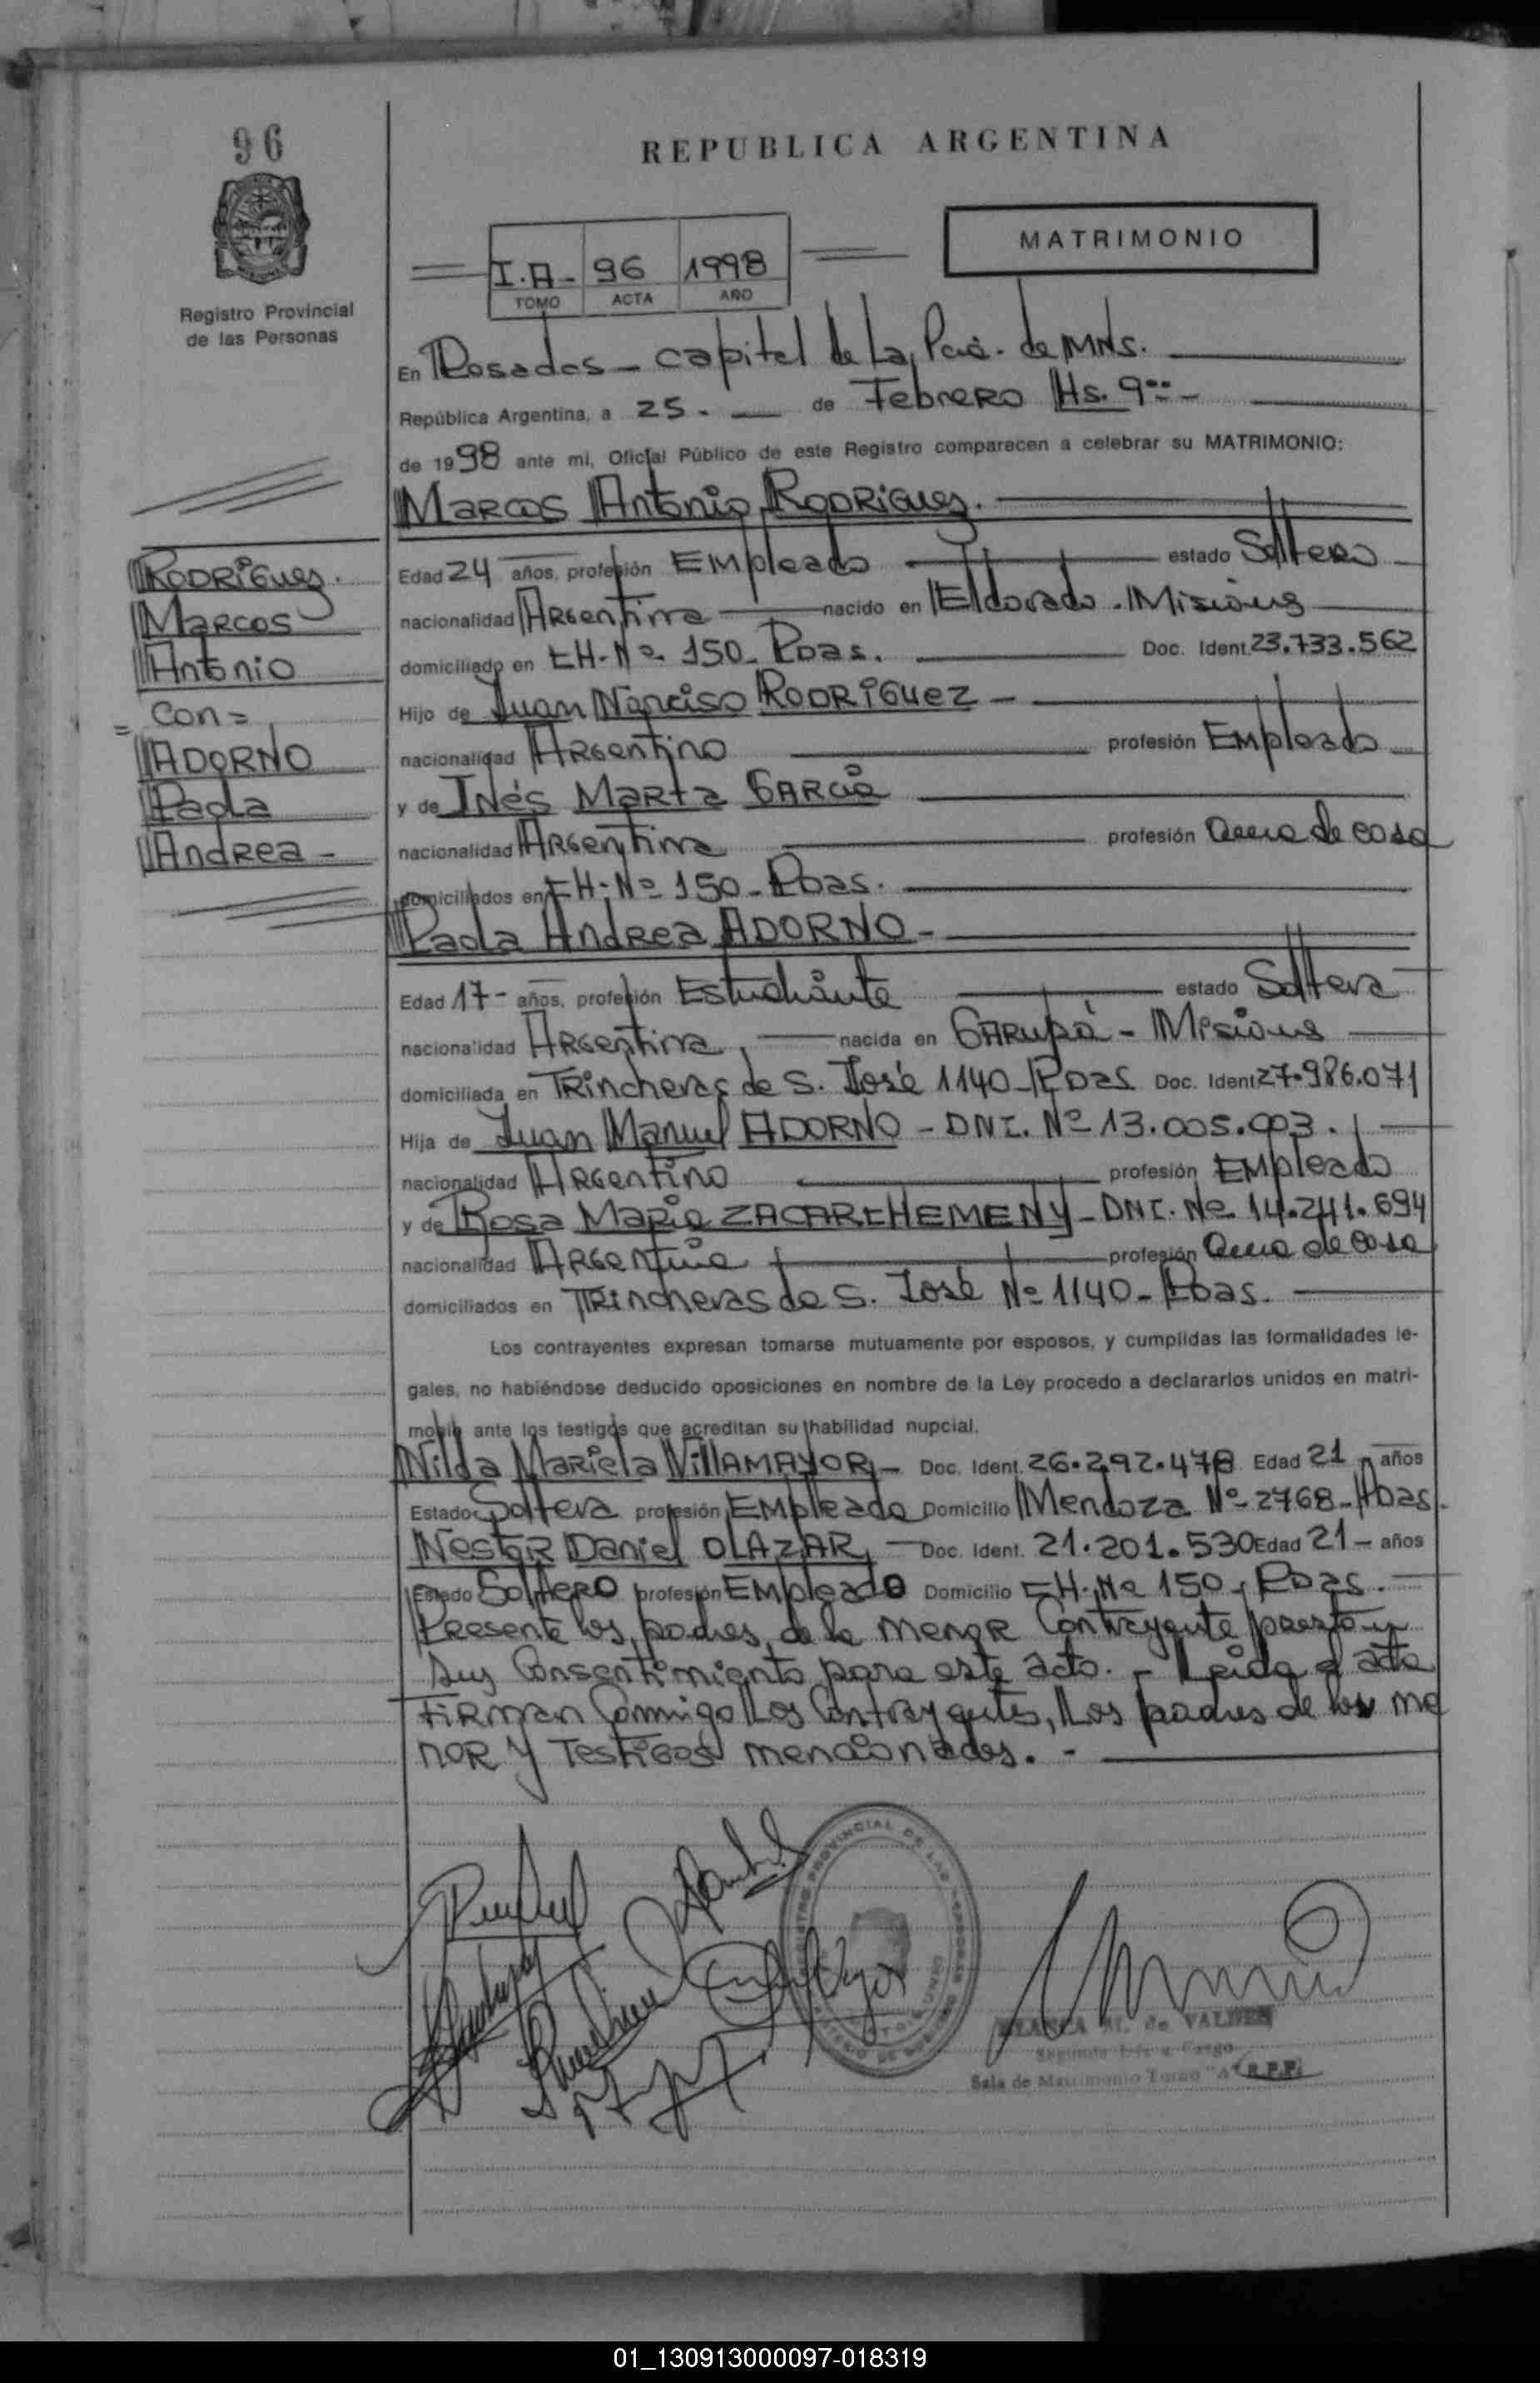 96
REPUBLICA ARGENTINA
MATRIMONIO
I.A- 96 1998
TOMO ACTA AÑO
Registro Provincial
de las Personas
En Posadas - capital de La Pcia. de MNS.
República Argentina, a 25. - de Febrero Hs. 9 -
de 1998 ante mi, Oficial Público de este Registro comparecen a celebrar su MATRIMONIO:
Marcos Antonio RODRIGUEZ.
RODRIGUEZ.
Marcos
Antonio
= Con =
ADORNO
Paola
Andrea -
Edad 24 años, profesión Empleado estado Soltero
nacionalidad Argentina nacido en Eldorado - Misiones
domiciliado en CH-Nº 150- Pdas. Doc. Ident. 23.733.562
Hijo de Juan Narciso RODRIGUEZ -
nacionalidad Argentino profesión Empleado
y de Inés Marta GARCIA
nacionalidad Argentina profesión ama de casa
domiciliados en CH-Nº 150- Pdas.
Paola Andrea ADORNO -
Edad 17 - años, profesión Estudiante estado Soltera
nacionalidad Argentina, nacida en GARUPÁ - Misiones
domiciliada en Trincheras de S. José 1140 - Pdas Doc. Ident 27.986.071
Hija de Juan Manuel ADORNO - DNI. Nº 13.005.003.
nacionalidad Argentino profesión Empleado
y de Rosa Maria - DNI. Nº 14.241.694
nacionalidad Argentina profesión ama de casa
domiciliados en Trincheras de S. José Nº 1140 - Pdas.
Los contrayentes expresan tomarse mutuamente por esposos, y cumplidas las formalidades le-
gales, no habiéndose deducido oposiciones en nombre de la Ley procedo a declararlos unidos en matri-
monio ante los testigos que acreditan su habilidad nupcial.
Nilda Mariela VILLAMAYOR - Doc. Ident. 26.292.478 Edad 21 años
Estado Soltera profesión Empleada Domicilio Mendoza Nº 2768 - Pdas.
Nestor Daniel OLAZAR, - Doc. Ident. 21.201.530 Edad 21 - años
Estado Soltero profesión Empleado Domicilio CH-Nº 150, Pdas.
Presente los padres de la menor Contrayente prestan
sus Consentimiento para este acto. - Leida el acta
Firman Conmigo Los Contrayentes, Los padres de la me
nor y Testigos mencionados. -
REGISTRO PROVINCIAL DE LAS PERSONAS
BLANCA M. de VALDEZ
Segunda Jefe a Cargo
Sala de Matrimonio Turno "A" R.P.P.
01_130913000097-018319